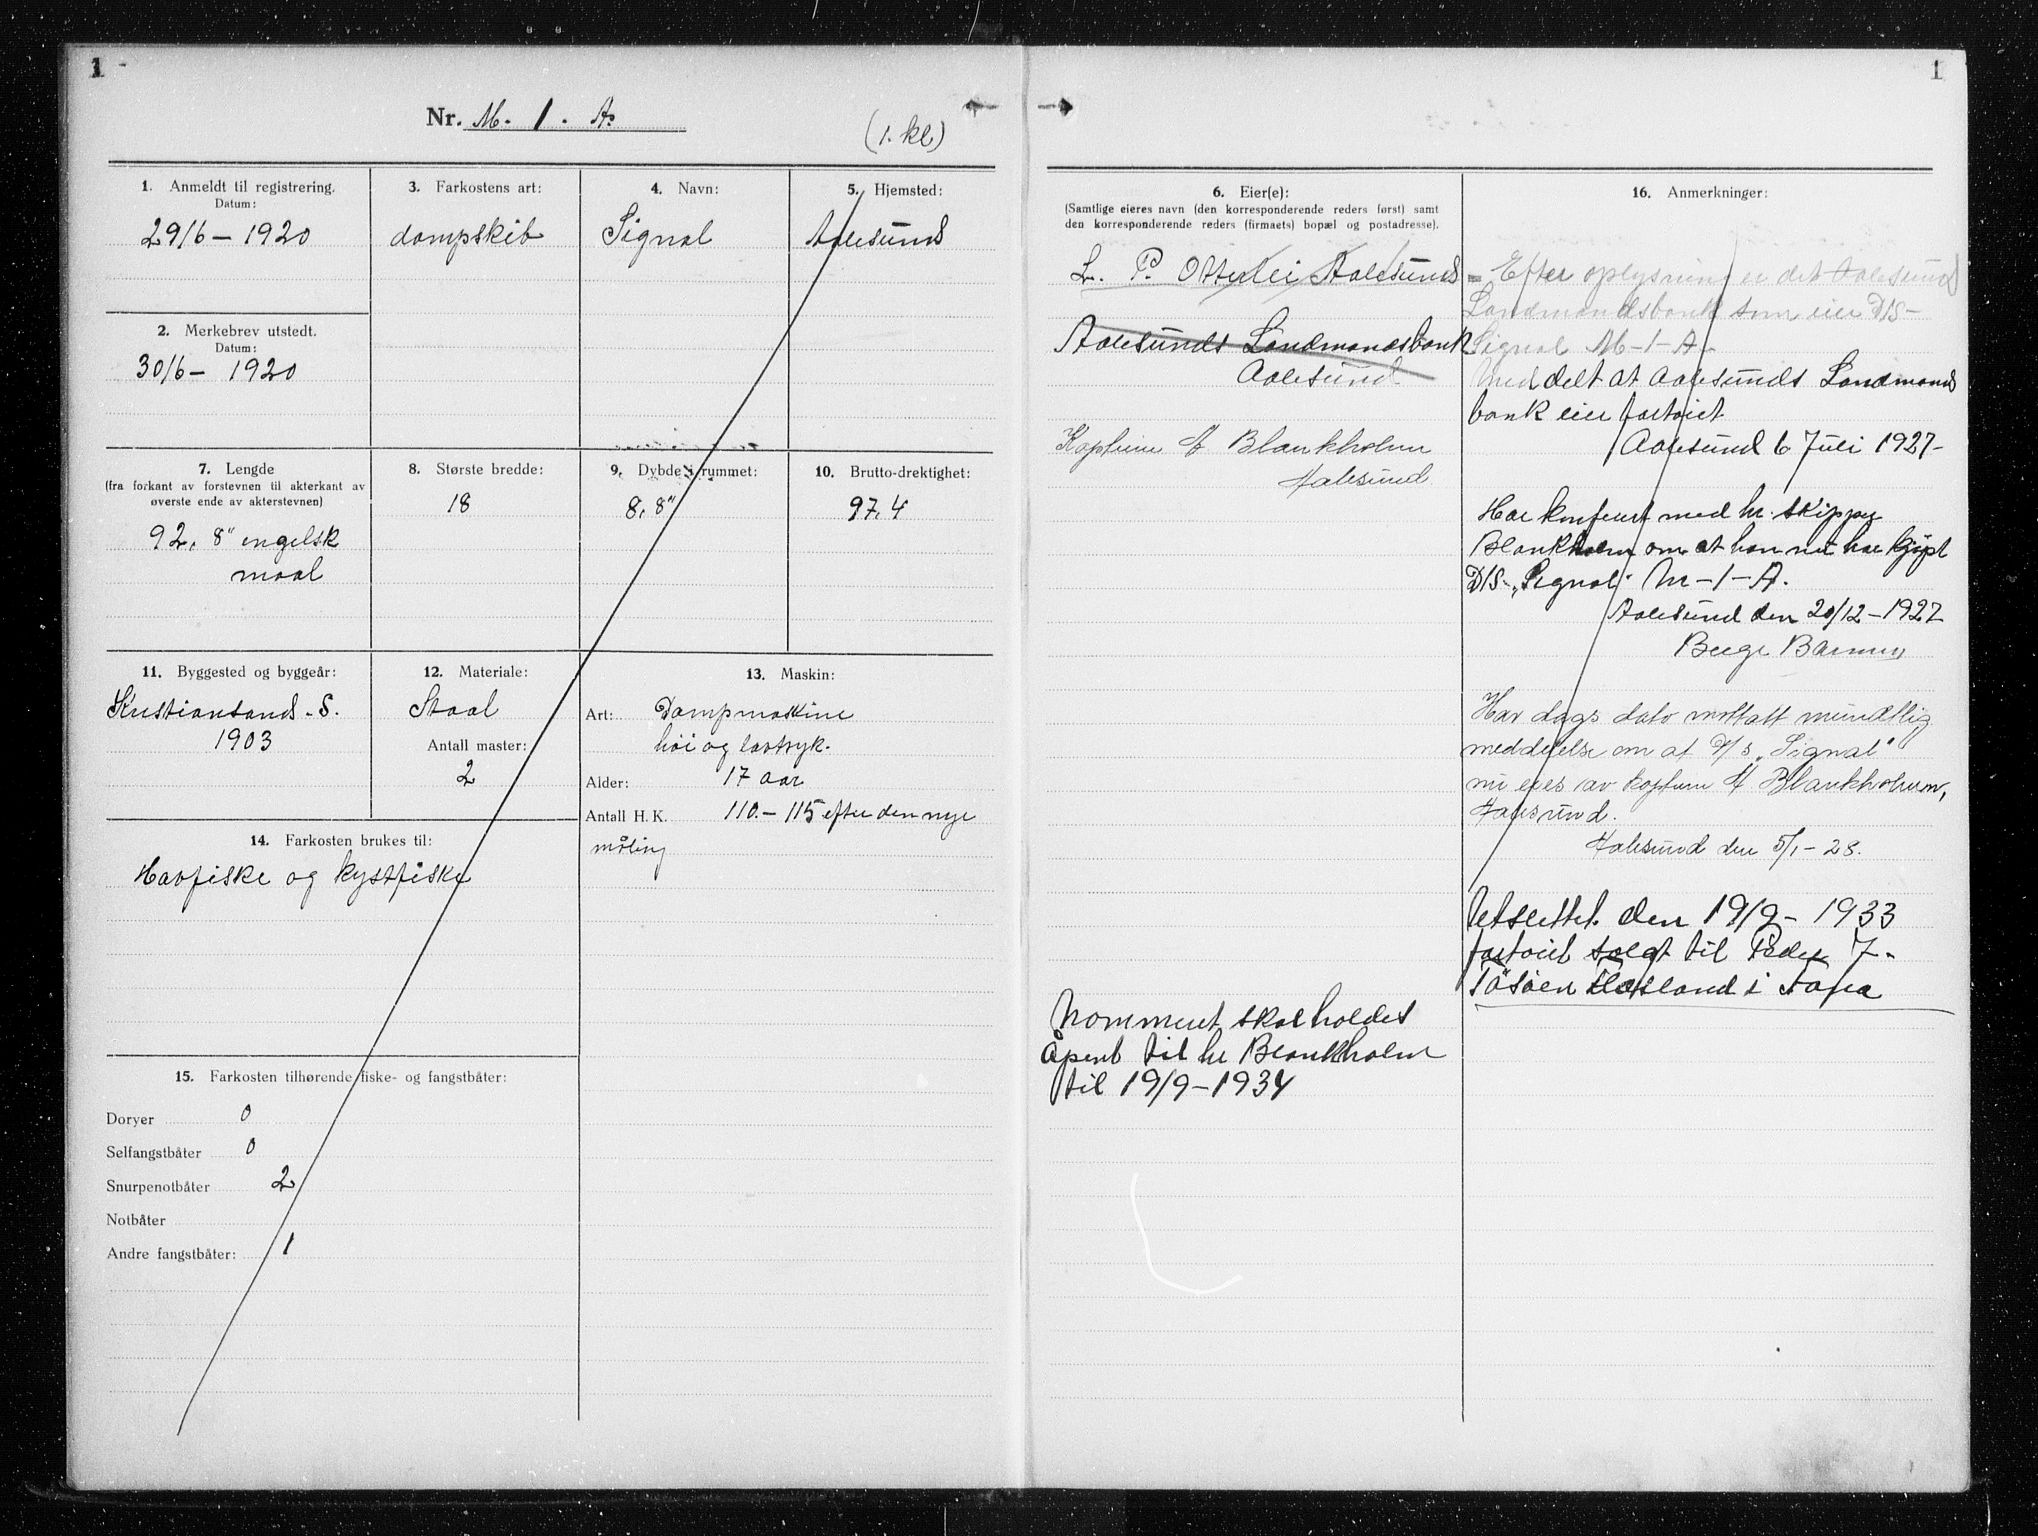 1
Nr. M. 1. A.
(1. kl)
1. Anmeldt til registrering.
Datum:
29/6 – 1920
2. Merkebrev utstedt.
Datum:
30/6 – 1920
3. Farkostens art:
dampskib
4. Navn:
Signal
5. Hjemsted:
Aalesund
7. Lengde
(fra forkant av forstevnen til akterkant av
øverste ende av akterstevnen)
92, 8" engelsk
maal
8. Største bredde:
18
9. Dybde i rummet:
8, 8"
10. Brutto-drektighet:
97,4
11. Byggested og byggeår:
Kristiansand. S.
1903
12. Materiale:
Staal
Antall master:
2
13. Maskin:
Art: Dampmaskine
høi og lavtryk.
Alder: 17 aar
Antall H. K. 110.– 115 efter den nye
måling
14. Farkosten brukes til:
Havfiske og kystfiske
15. Farkosten tilhørende fiske- og fangstbåter:
Doryer 0
Selfangstbåter 0
Snurpenotbåter 2
Notbåter
Andre fangstbåter: 1
1
6. Eier(e):
(Samtlige eieres navn (den korresponderende reders først) samt
den korresponderende reders (firmaets) bopæl og postadresse).
L. P. Otterlei Aalesund
Aalesunds Landmandsbank
Aalesund
Kaptein Blankholm
Aalesund
Nommeret skal holdes
åpent til hr Blankholm
til 19/9 – 1934
16. Anmerkninger:
= Efter oplysning er det Aalesund
Landmandsbank som eier D/S –
Signal M – 1 – A.
Meddelt at Aalesunds Landmands
bank eier fartøiet
Aalesund 6 Juli 1927 –
Har konferert med hr. skipper
Blankholm om at han nu har kjøpt
D/S – „Signal" M – 1 – A.
Aalesund den 20/12 – 1927
Har dags dato mottatt mundtlig
meddelelse om at D/S „Signal"
nu eies av kaptein Blankholm,
Aalesund.
Aalesund den 5/1 – 28.
Utslettet den 19/9 – 1933
fartøiet solgt til Peder
i Fana